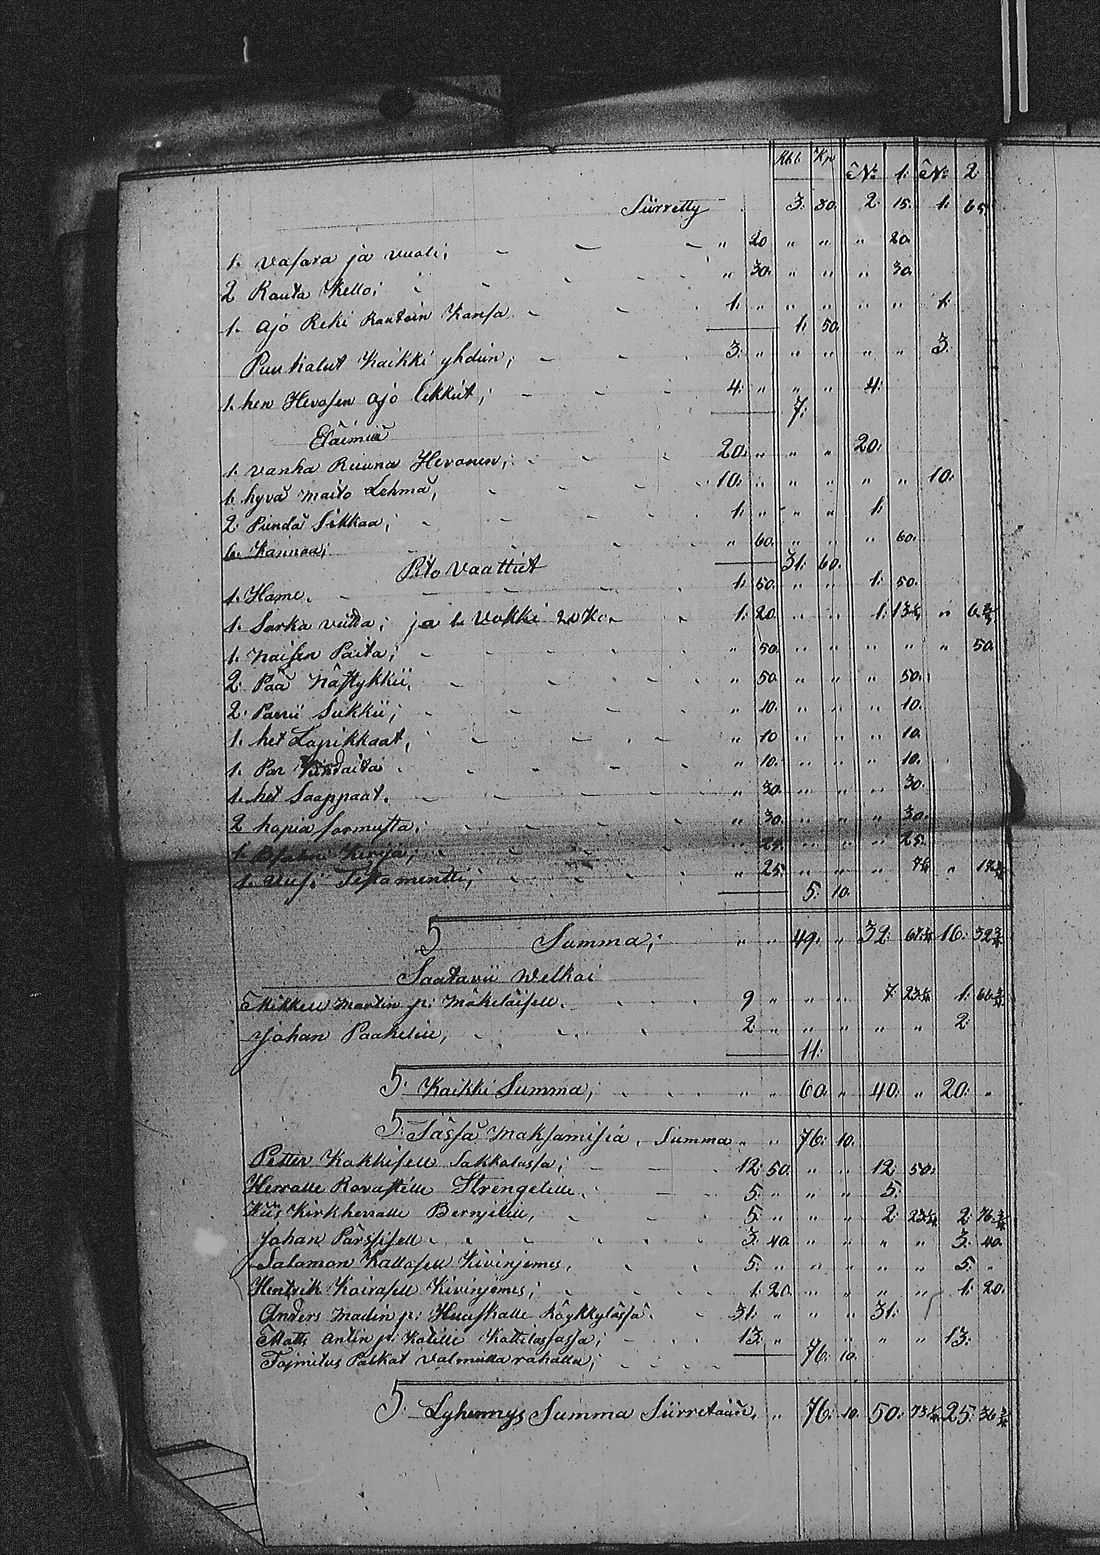 Rbl. Kp. No 1. No 2
Siirretty 3. 30. 2. 15. 1. 65.
1. Vasara ja vuoli; " 20. " " " 20.
2 Rauta Kelloi " 30. " " " 30.
1. ajo Reki Rautoin Kansa 1. " " " " " 1.
1. 50.
Puu kalut Kaikki yhdiin; 3. " " " " " 3.
1. hen Hevosen ajo likkut; 4. " " " 4.
7.
Eläimiä
1. vanha Ruuna Hevonen; 20. " " " 20.
1. hyvä maito Lehmä, 10. " " " " " 10.
2. Piendä Sikkaa; 1. " " " 1.
6. Kannaa; " 60. " " " 60.
31. 60.
Pito Vaattiet
1. Hame. 1. 50. " " 1. 50.
1. Sarka viitta; ja 1. Vokki 20 K. 1. 20. " " 1.
1. Naisen Paita; " 50. " " " " " 50.
2. Pää Nästykkii, " 50. " " " 50.
2. Parrii Sukkii; " 10. " " " 10.
1. het Lapikkaat, " 10 " " " 10.
1. Par " 10. " " " 10.
1. het Saappaat. " 30. " " " 30.
2 hopia sormusta. " 30. " " " 30.
1. Kirja; " 25. " " " 25.
1. Uusi Testamentti; " 25. " " "
5. 10.
S Summa; " " 49. " 32. 16.
Saatavii Welkoi
Mikkell Martin p: Mäkeläisell. 9 " " " 7. 1.
Johan Paakelin, 2. " " " " " 2.
11.
S: Kaikki Summa; " " 60. " 40. " 20. "
S: Tässä Maksamisia. Summa " " 76. 10.
Petter Kakkisell Sakkolassa; 12. 50. " " 12. 50.
Herralle Rovastille Strengelille. 5. " " " 5.
Kirkherralle 5. " " " 2. 2.
Johan Pärssisell 3. 40. " " " " 3. 40.
Salamon Kallosell Kivinjemes. 5. " " " " " 5. "
Hentrik Koirasell Kivinjemes; 1. 20. " " " " 1. 20.
Anders Madin p: Huuskalle 31. " " " 31.
Matts Antin p: Kotille 13. " " " " " 13.
Tojmitus Palkat valmiilla rahalla;
76. 10.
S: Lyhennys Summa Siirretään, " 76. 10. 50. 25.